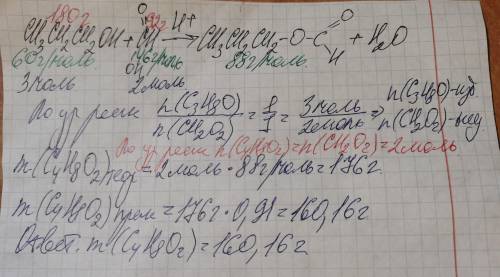 180г 92г
CH3CH2CH2OH + CH → CH3CH2CH2-O-C + H2O
O H+ O
OH H
60г/моль 46г/моль 88г/моль
3моль 2моль
По ур. реак n(C3H8O)/n(CH2O2) = 1/1 = 3моль/2моль => n(C3H8O)-изб. n(CH2O2)-
По ур реак n(C4H8O2)=n(CH2O2)=2моль
m(C4H8O2)теор=2моль·88г/моль=176г.
m(C4H8O2)прак=176г·0,91=160,16г.
Ответ: m(C4H8O2)=160,16г